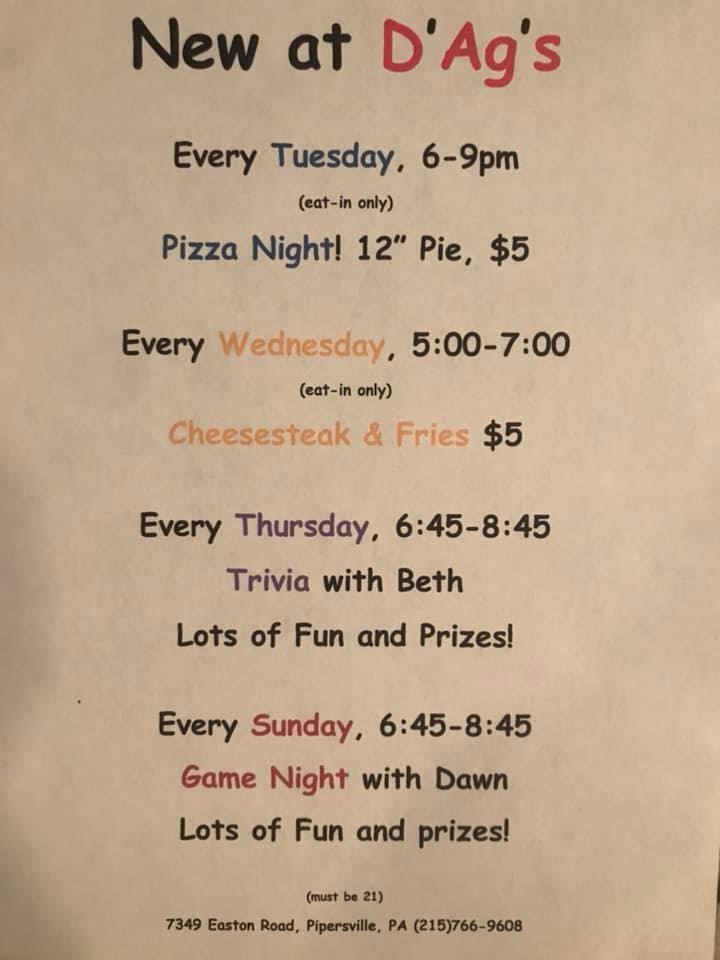 New at D'Ag's
Every Tuesday, 6-9pm
(eat-in only)
Pizza Night! 12" Pie, $5
Every Wednesday, 5:00-7:00
(eat-in only)
Cheesesteak & Fries $5
Every Thursday, 6:45-8:45
Trivia with Beth
Lots of Fun and Prizes!
Every Sunday, 6:45-8:45
Game Night with Dawn
Lots of Fun and prizes!
(must be 21)
7349 Easton Road, Pipersville, PA (215)766-9608